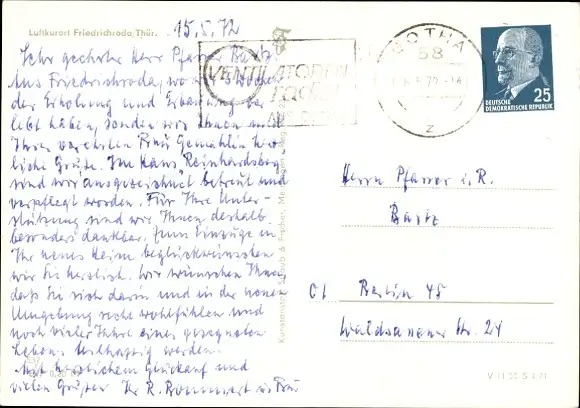 Luftkurort Friedrichroda/Thür.
15.5.72
Sehr geehrter Herr Pfarrer Bartz
Aus Friedrichroda, wo wir 3 Wochen
der Erholung und Erbauung ver-
lebt haben, senden wir Ihnen und
Ihrer verehrten Frau Gemahlin herz-
liche Grüße. Im Haus "Reinhardsberg"
sind wir ausgezeichnet betreut und
verpflegt worden. Für Ihre Unter-
stützung sind wir Ihnen deshalb
besonders dankbar. Zum Einzuge in
Ihr neues Heim beglückwünschen
wir Sie herzlich. Wir wünschen Ihnen,
daß Sie sich darin und in der neuen
Umgebung recht wohlfühlen und
noch vieler Jahre eines gesegneten
Lebens teilhaftig werden.
Mit herzlichem Glückauf und
vielen Grüßen Ihr R. u. Frau
VENTILATOREN
GOTHA
58
z
25
DEUTSCHE
DEMOKRATISCHE REPUBLIK
Herrn Pfarrer i. R.
Bartz
Berlin 45
Str. 24